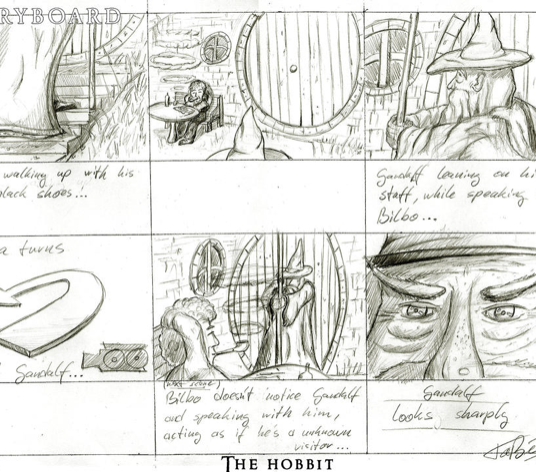 RYBOARD
walking up with his
black shoes!..
Gandalf leaning on hi
staff, while speaking
Bilbo...
a turns
Gandalf...
Bilbo doesn't notice Gandalf
and speaking with him,
acting as if he's a unknown
visitor...
Gandalf
looks sharply
THE HOBBIT